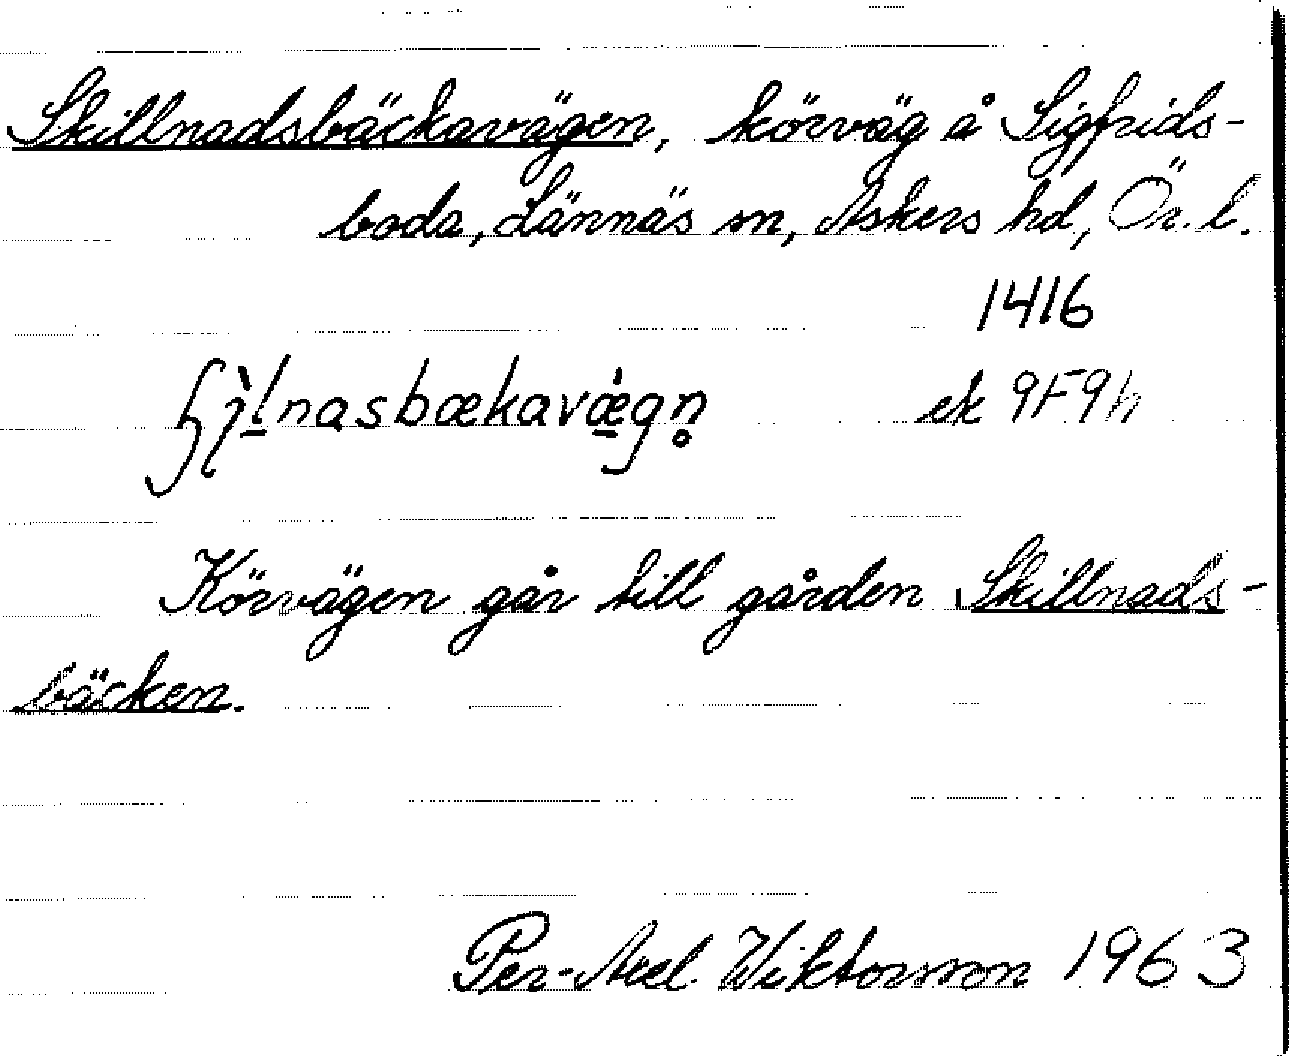 Skillnadsbäckavägen, körväg å Sigfrids-
boda, Lännäs sn, Askers hd, Ör. l.
1416
ek 9F9h
Körvägen går till gården Skillnads-
bäcken.
Per-Axel Wiktorsson 1963